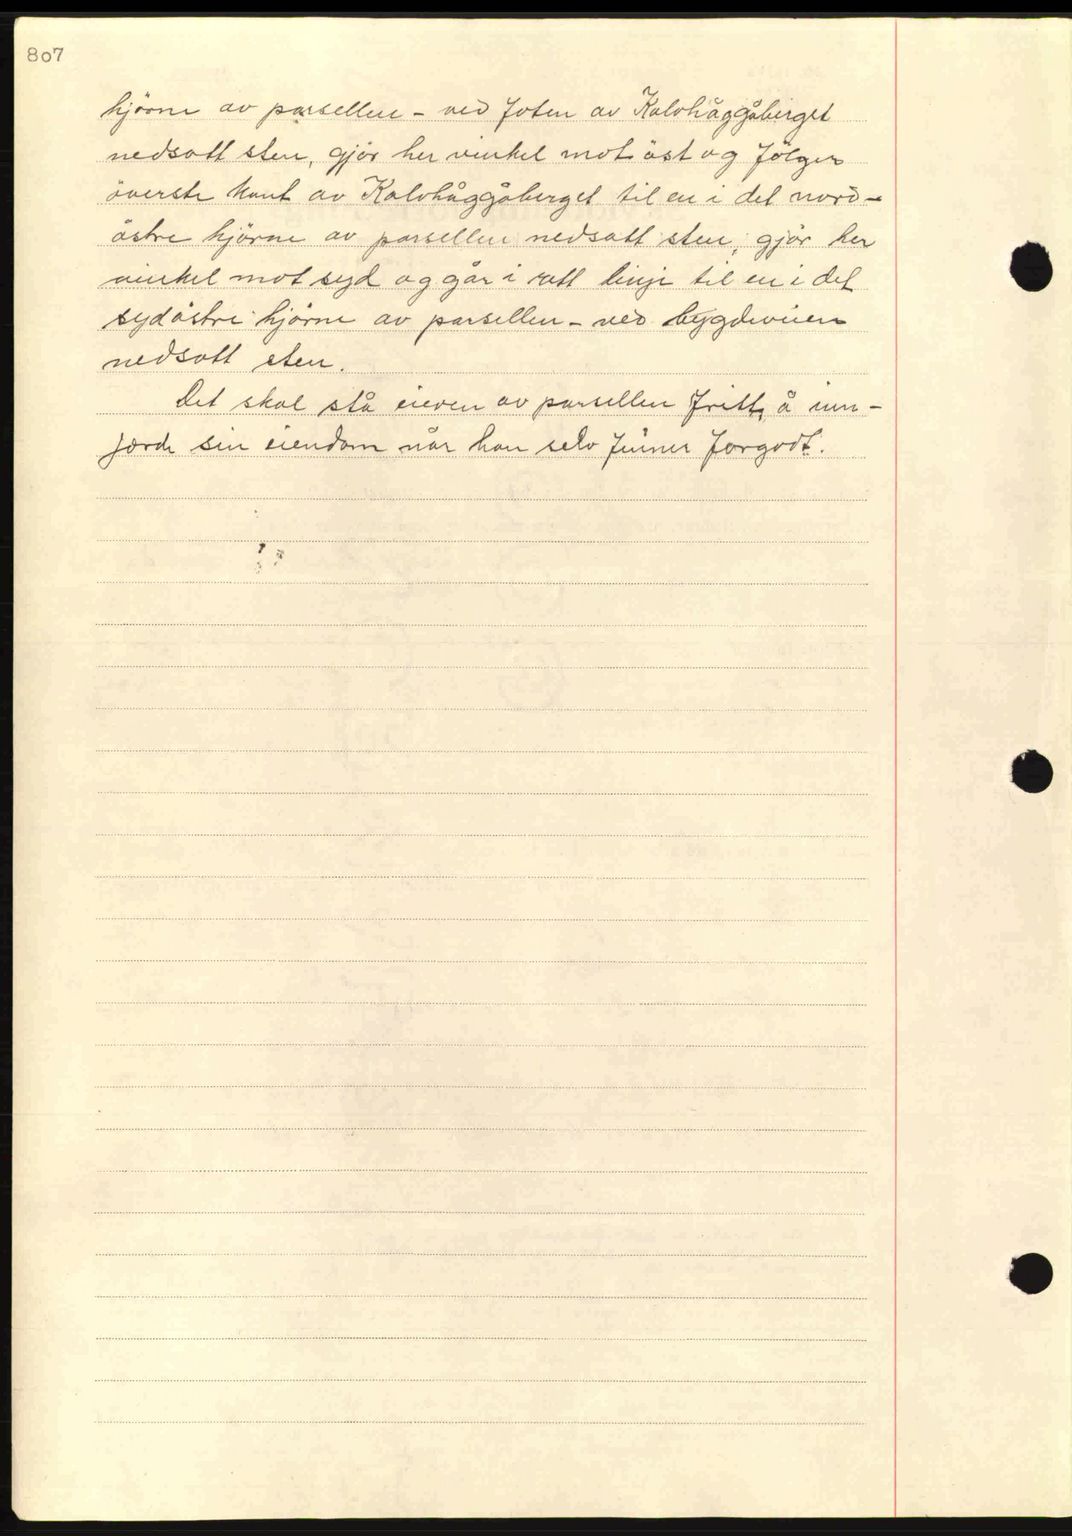 807
hjörne av parsellen - ved foten av Kalvhåggåberget
nedsatt sten, gjör her vinkel mot öst og fölger
överste kant av Kalvhåggåberget til en i det nord-
östre hjörne av parsellen nedsatt sten, gjör her
vinkel mot syd og går i rett linje til en i det
sydöstre hjörne av parsellen - ved bygdeveien
nedsatt sten.
Det skal stå eieren av parsellen fritt, å inn-
jerde sin eiendom når han selv finner forgodt.